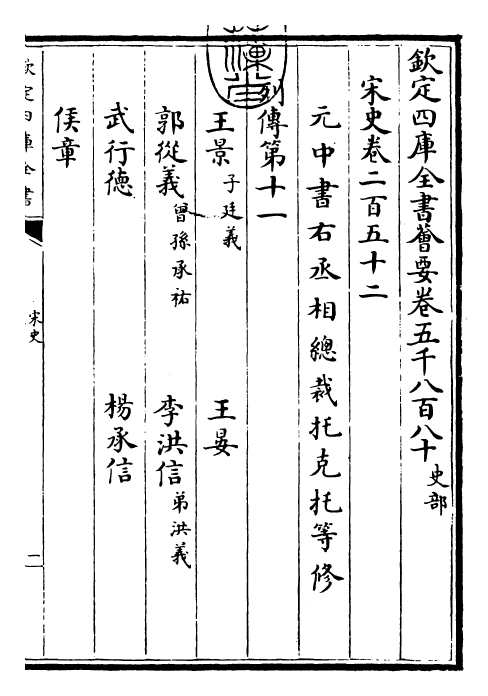 欽定四庫全書薈要卷五千八百八十 史部
宋史卷二百五十二
元中書右丞相總裁托克托等修
列傳第十一
王景 子廷義 王晏
郭從義 曾孫承祐 李洪信 弟洪義
武行德 楊承信
侯章
欽定四庫全書
宋史
二